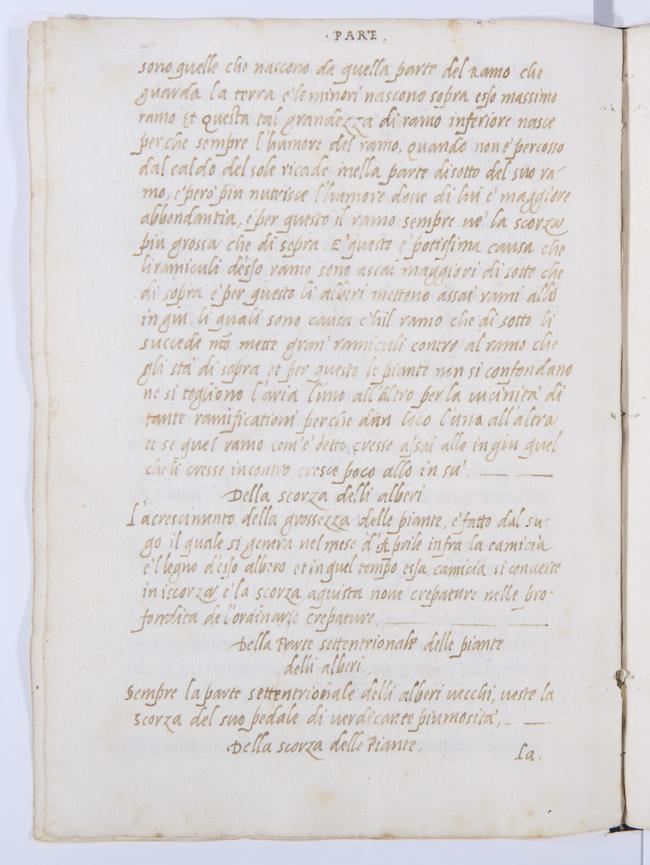 · PARTE .
sono quelle che nascono da quella parte del ramo che
guarda la terra e le minori nascono sopra esso massimo
ramo Et questa tal grandezza di ramo inferiore nasce
perche sempre l'humore del ramo, quando non è percosso
dal caldo del sole ricade nella parte di sotto del suo ra-
mo, e però piu nutrisce l'humore doue di lui è maggiore
abbondantia, e per questo il ramo sempre ue' la scorza
piu grossa che di sopra E questo è potissima causa che
li ramiculi d'esso ramo sono assai maggiori di sotto che
di sopra e per questo li alberi mettono assai rami allo
in giu, li quali sono causa ch'il ramo che di sotto li
succede nõ mette gran' ramiculi contro al ramo che
gli sta' di sopra et per questo le piante non si confondano
ne si togliono l'aria l'uno all'altro per la uicinita' di
tante ramificationi perche dan loco l'uno all'altro
et se quel ramo com'è detto cresse assai allo in giu quel
che li cresse incontro cresce poco allo in su'.
Della scorza delli alberi
L'acrescimento della grossezza delle piante, è fatto dal su-
go il quale si genera nel mese d'Aprile infra la camicia
e'l legno d'esso albero et in quel tempo essa camicia si conuerte
in iscorza e la scorza aquista noue crepature nelle pro-
fondita de l'ordinarie crepature.
Della Parte settentrionale delle piante
delli alberi
Sempre la parte settentrionale delli alberi uecchi, ueste la
scorza del suo pedale di uerdicante piumosita',
Della scorza delle Piante.
La.